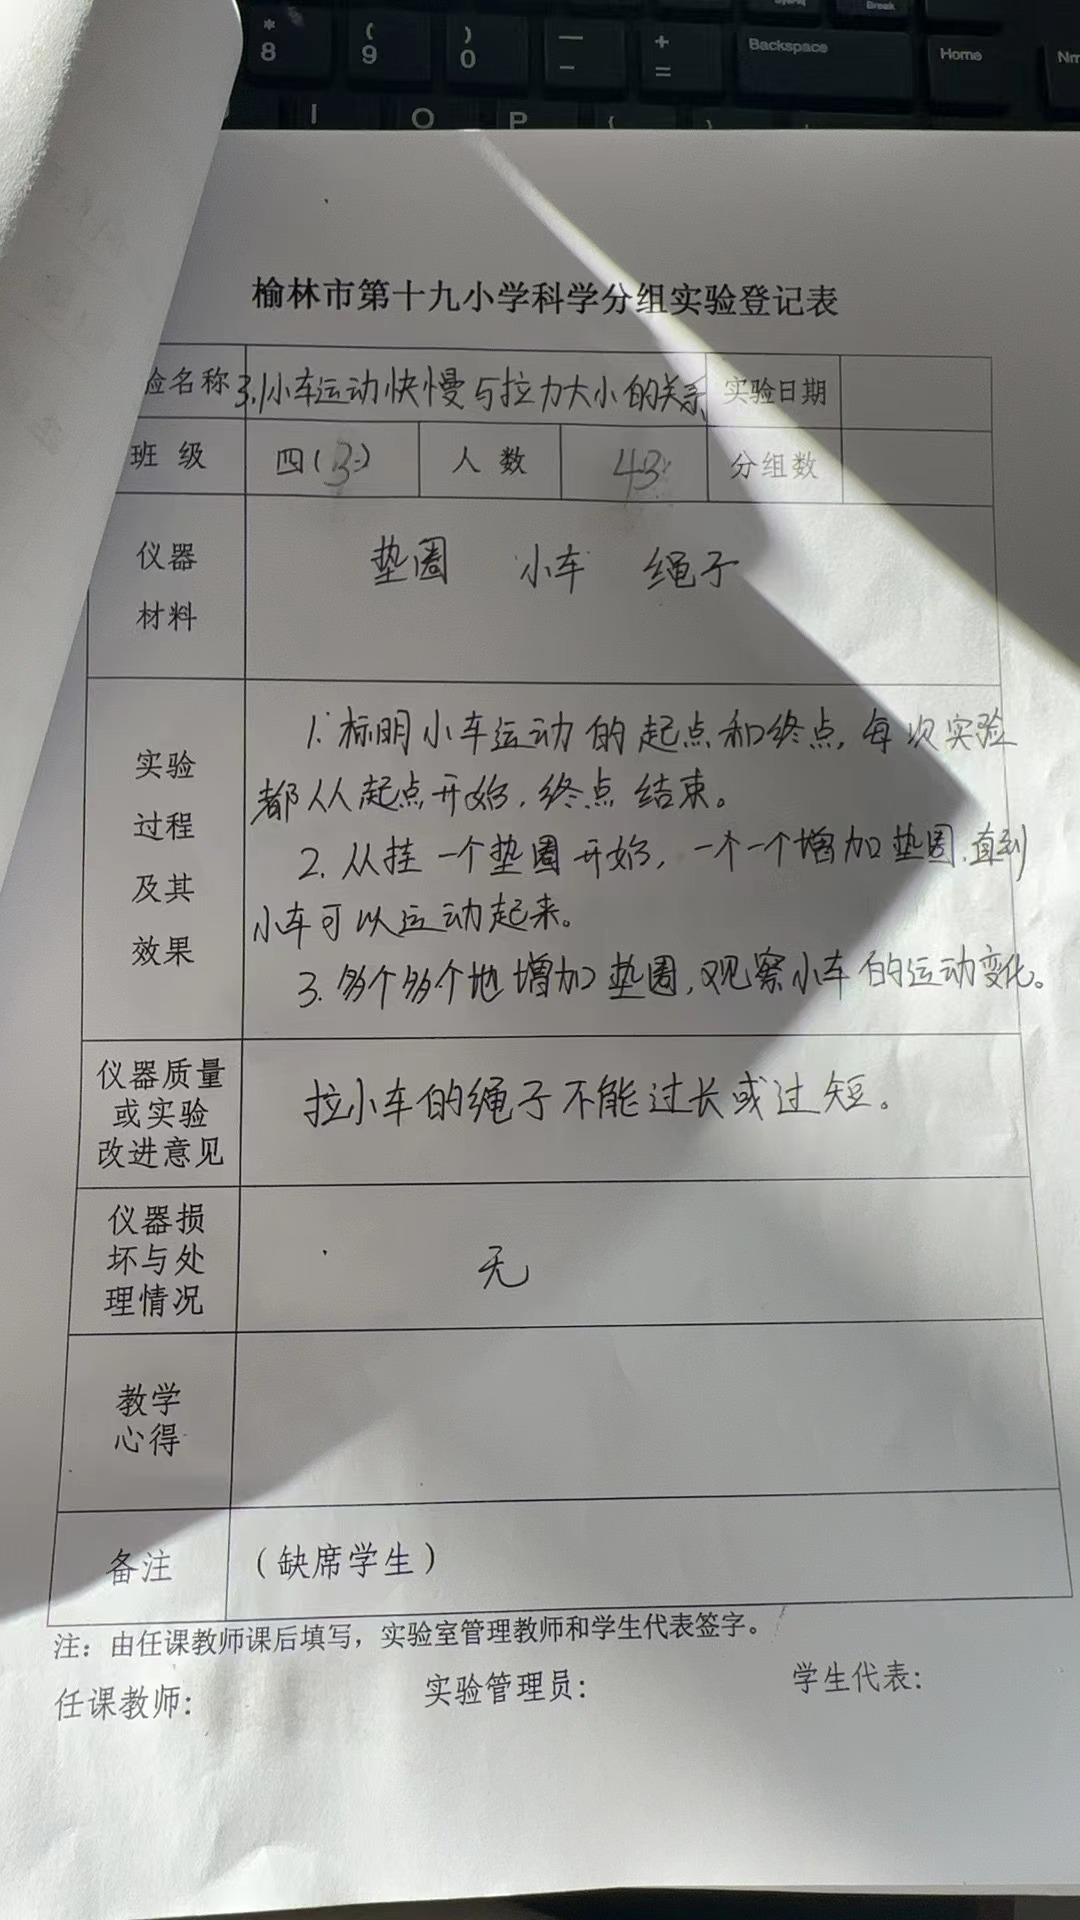 *
8
(
9
)
0
—
-
+
=
Backspace
Break
Home
I
O
P
{
}
榆林市第十九小学科学分组实验登记表
验名称 3.1小车运动快慢与拉力大小的关系 实验日期
班 级 四(3) 人 数 43 分组数
仪器
材料
垫圈 小车 绳子
实验
过程
及其
效果
1. 标明小车运动的起点和终点,每次实验
都从起点开始,终点结束。
2. 从挂一个垫圈开始,一个一个增加垫圈,直到
小车可以运动起来。
3. 多个多个地增加垫圈,观察小车的运动变化。
仪器质量
或实验
改进意见
拉小车的绳子不能过长或过短。
仪器损
坏与处
理情况
无
教学
心得
备注 (缺席学生)
注:由任课教师课后填写,实验室管理教师和学生代表签字。
任课教师: 实验管理员: 学生代表: